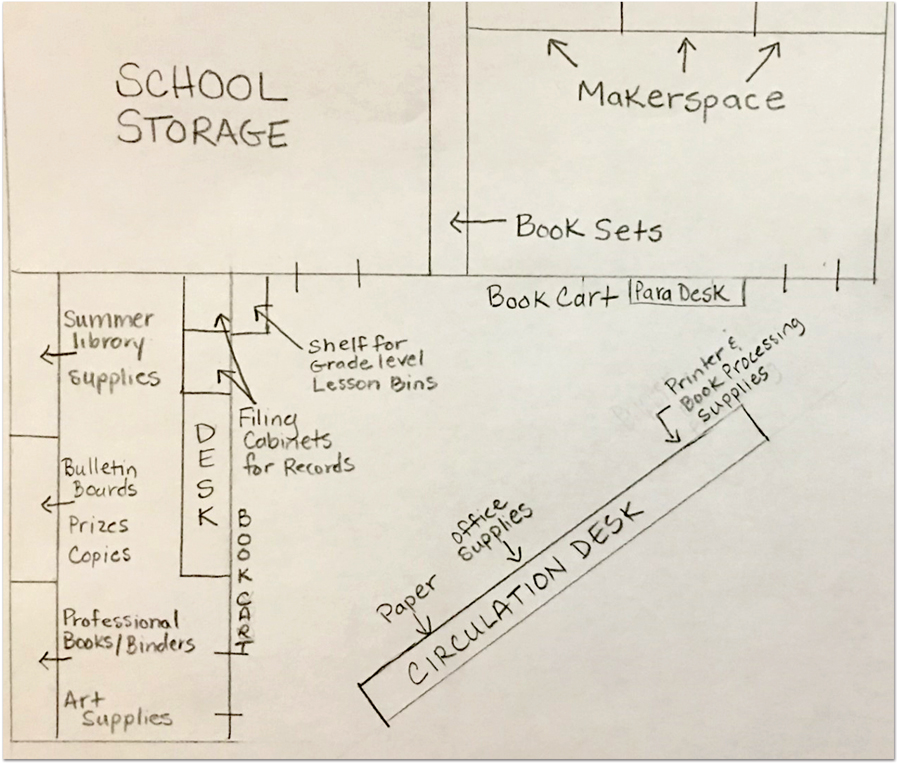 SCHOOL
STORAGE
Makerspace
Book Sets
Book Cart
Para Desk
Summer
library
Supplies
Shelf for
Grade level
Lesson Bins
Printer &
Book Processing
Supplies
Filing
Cabinets
for Records
DESK
Bulletin
Boards
Prizes
Copies
BOOK CART
Office
Supplies
Paper
CIRCULATION DESK
Professional
Books/Binders
Art
Supplies